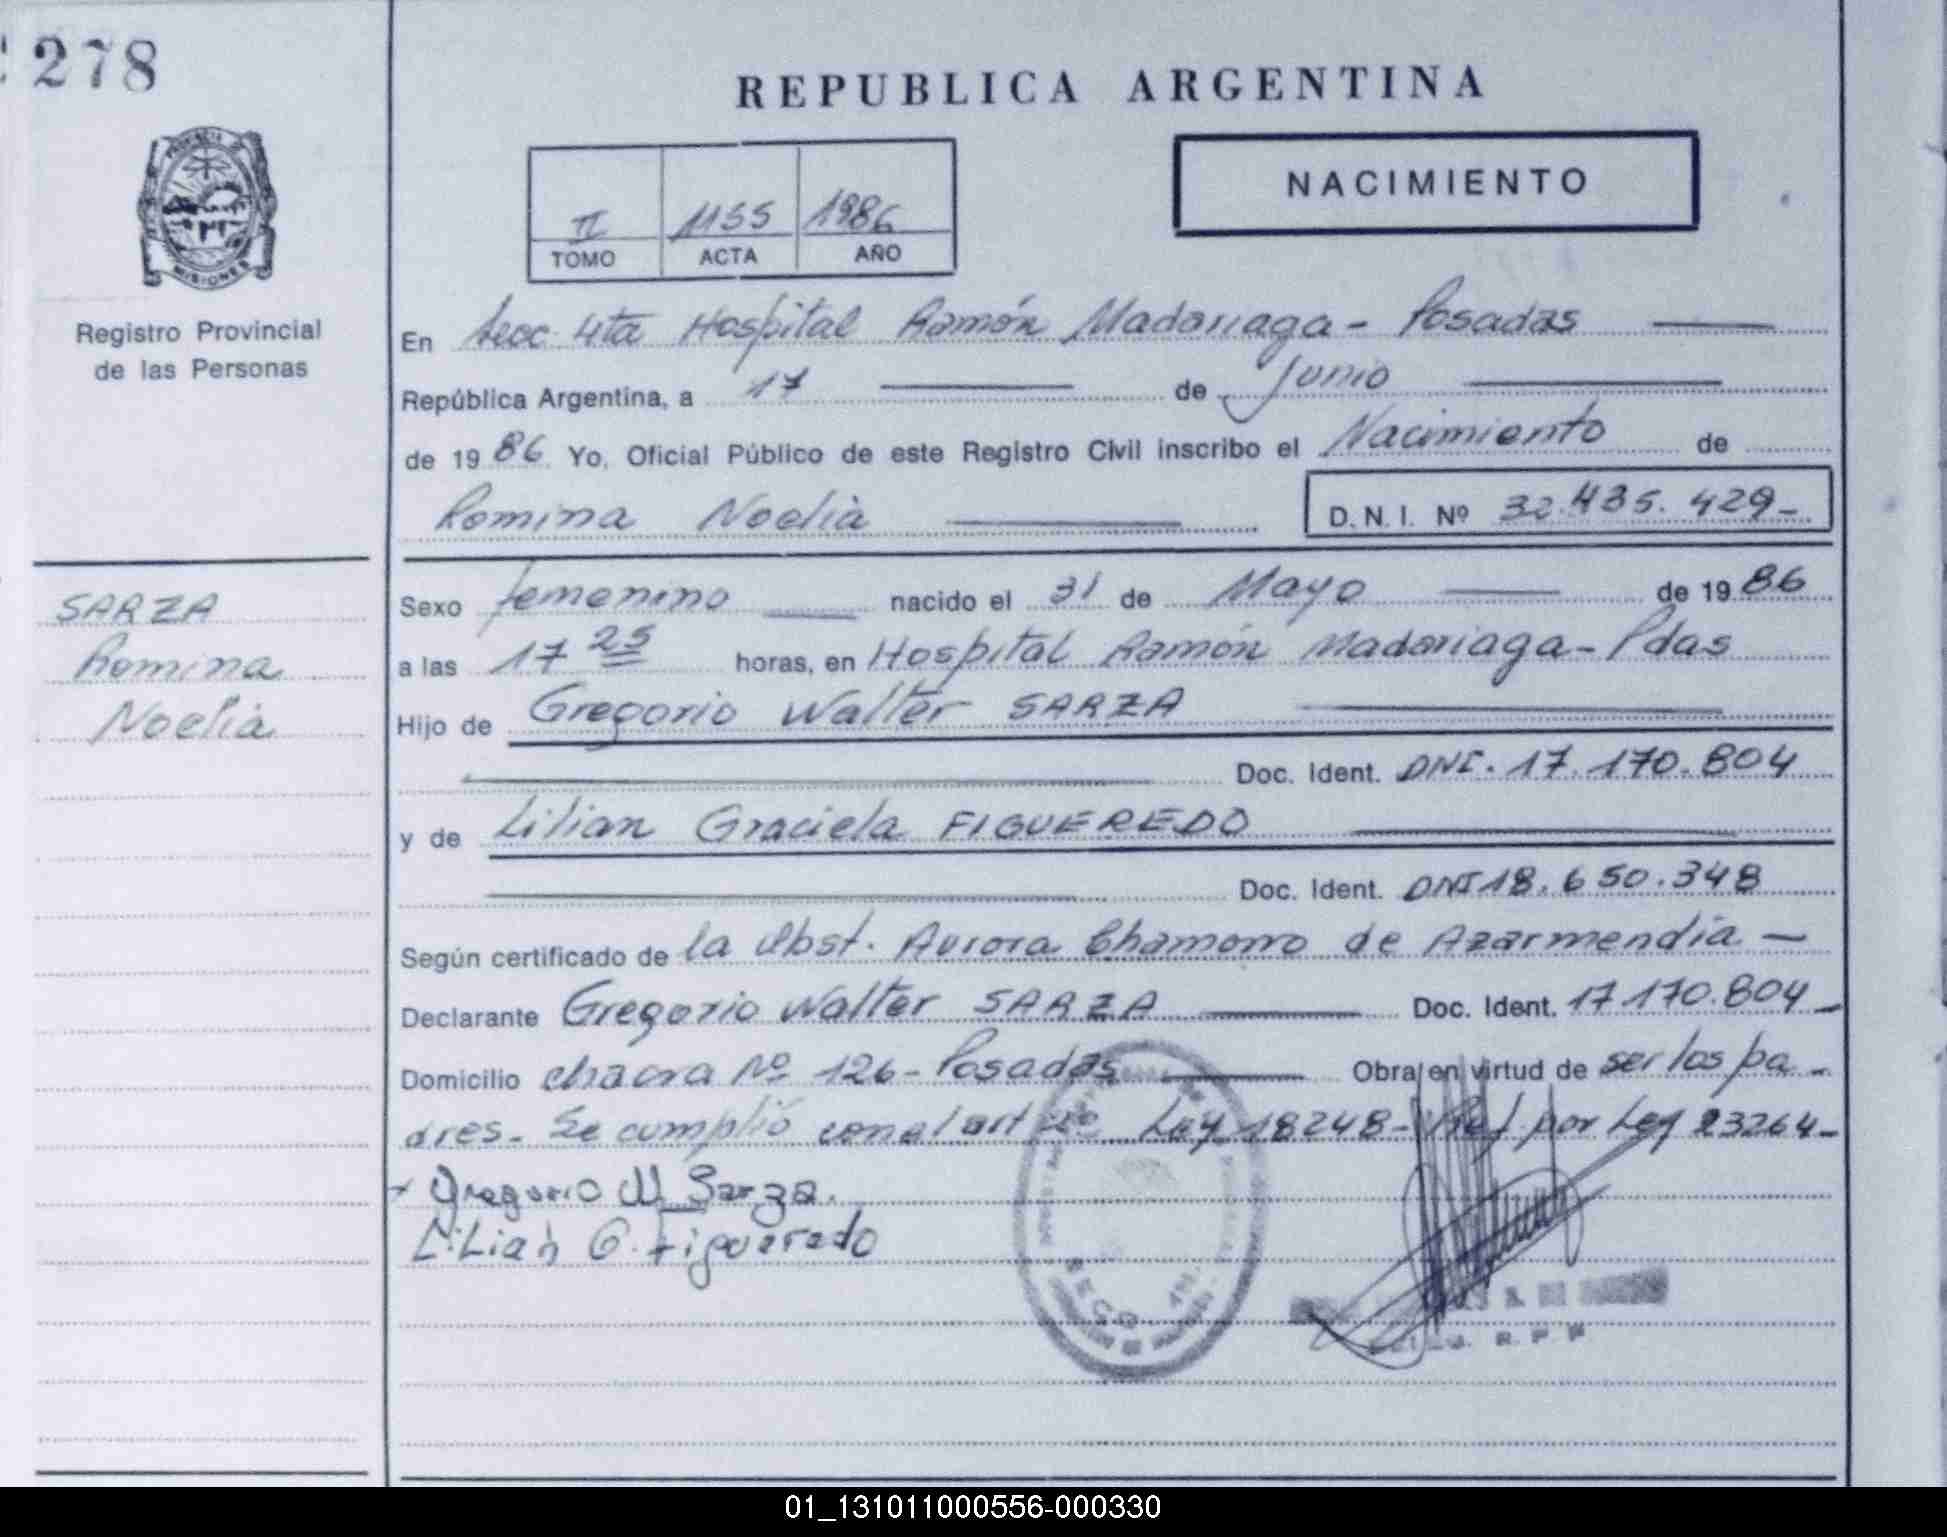 278
REPUBLICA ARGENTINA
NACIMIENTO
II 1155 1986
TOMO ACTA AÑO
PROVINCIA DE MISIONES
Registro Provincial
de las Personas
En Secc. 4ta Hospital Ramón Madariaga - Posadas
República Argentina, a 17 de Junio
de 1986 Yo, Oficial Público de este Registro Civil inscribo el Nacimiento de
Romina Noelia D.N.I. Nº 32.435.429-
SARZA
Romina
Noelia
Sexo femenino nacido el 31 de Mayo de 1986
a las 17 25 horas, en Hospital Ramón Madariaga - Pdas
Hijo de Gregorio Walter SARZA
Doc. Ident. DNI. 17.170.804
y de Lilian Graciela FIGUEREDO
Doc. Ident. DNI 18.650.348
Según certificado de la Obst. Aurora Chamorro de Azarmendia -
Declarante Gregorio Walter SARZA Doc. Ident. 17.170.804-
Domicilio chacra Nº 126 - Posadas Obra en virtud de ser los pa-
dres. Se cumplió con el art Ley 18248- Ref. por Ley 23264-
Gregorio W Sarza.
Lilian G. Figueredo
SECC.
R. P. P.
01_131011000556-000330